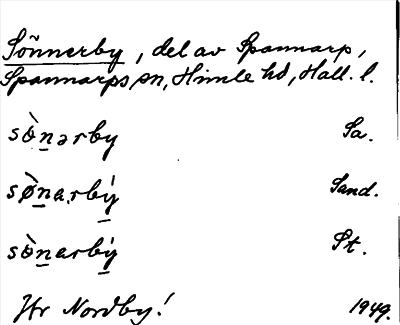 Sönnerby, del av Spannarp,
Spannarps sn, Himle hd, Hall. l.
sò̤nərby Sa.
sø̀narbý Sand.
sònarbý St.
Jfr Nordby! 1949.